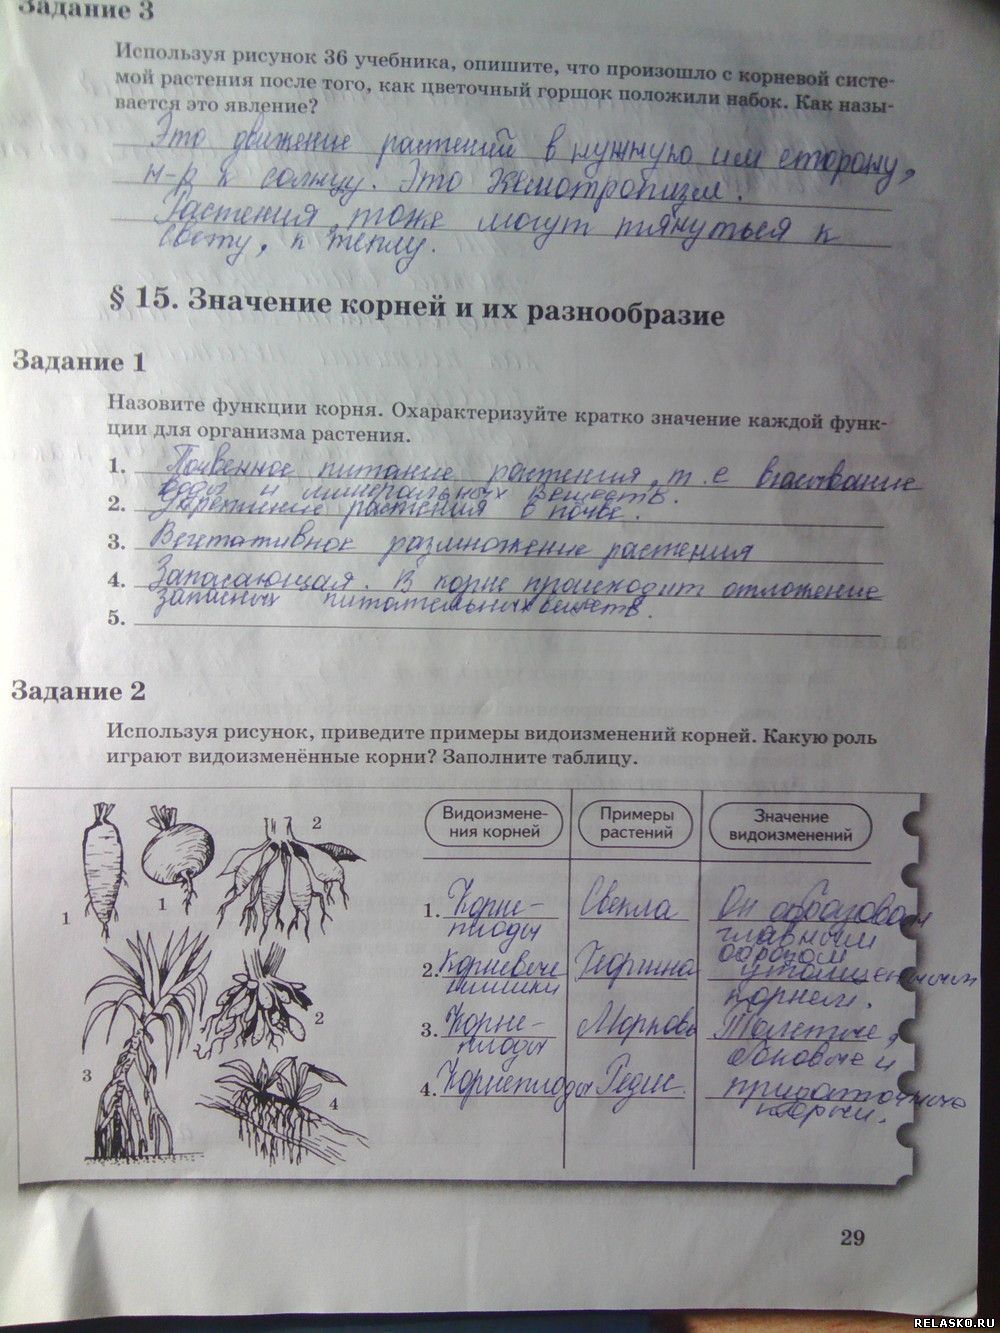 Задание 3
Используя рисунок 36 учебника, опишите, что произошло с корневой систе-
мой растения после того, как цветочный горшок положили набок. Как назы-
вается это явление?
Это движение растений в нужную им сторону,
н-р к солнцу. Это Хемотропизм.
Растения тоже могут тянуться к
свету, к теплу.
§ 15. Значение корней и их разнообразие
Задание 1
Назовите функции корня. Охарактеризуйте кратко значение каждой функ-
ции для организма растения.
1. Почвенное питание растения, т. е всасывание
воды и минеральных веществ.
2. Укрепление растения в почве.
3. Вегетативное размножение растения
4. Запасающая. В корне происходит отложение
запасных питательных веществ.
5.
Задание 2
Используя рисунок, приведите примеры видоизменений корней. Какую роль
играют видоизменённые корни? Заполните таблицу.
1
1
2
2
3
4
Видоизмене-
ния корней
Примеры
растений
Значение
видоизменений
1. Корне-
плоды
Свекла
Он образован
главным
образом
утолщенным
корнем.
2. Корневые
шишки
Георгина
3. Корне-
плоды
Морковь
Толстые,
боковые и
придаточные
корни.
4. Корнеплоды
Редис.
29
RELASKO.RU